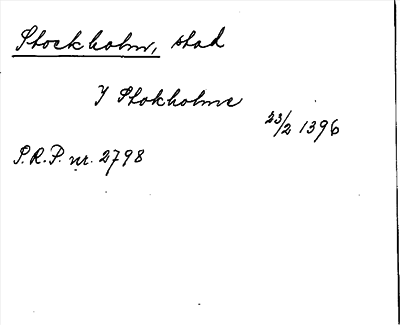 Stockholm, stad
J Stokholme
23/2 1396
S.R.P. nr. 2798